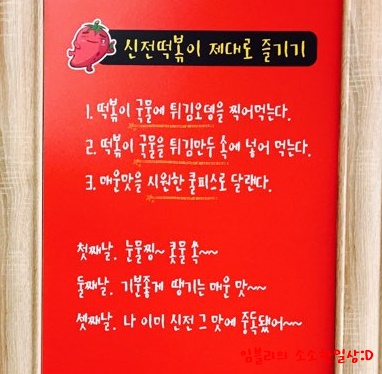 신전떡볶이 제대로 즐기기
1. 떡볶이 국물에 튀김오뎅을 찍어먹는다.
2. 떡볶이 국물을 튀김만두 속에 넣어 먹는다.
3. 매운맛을 시원한 쿨피스로 달랜다.
첫째날. 눈물찡~ 콧물 쏙~~
둘째날. 기분좋게 땡기는 매운 맛~~
셋째날. 나 이미 신전 그 맛에 중독됐어~~
임블리의 소소한일상:D